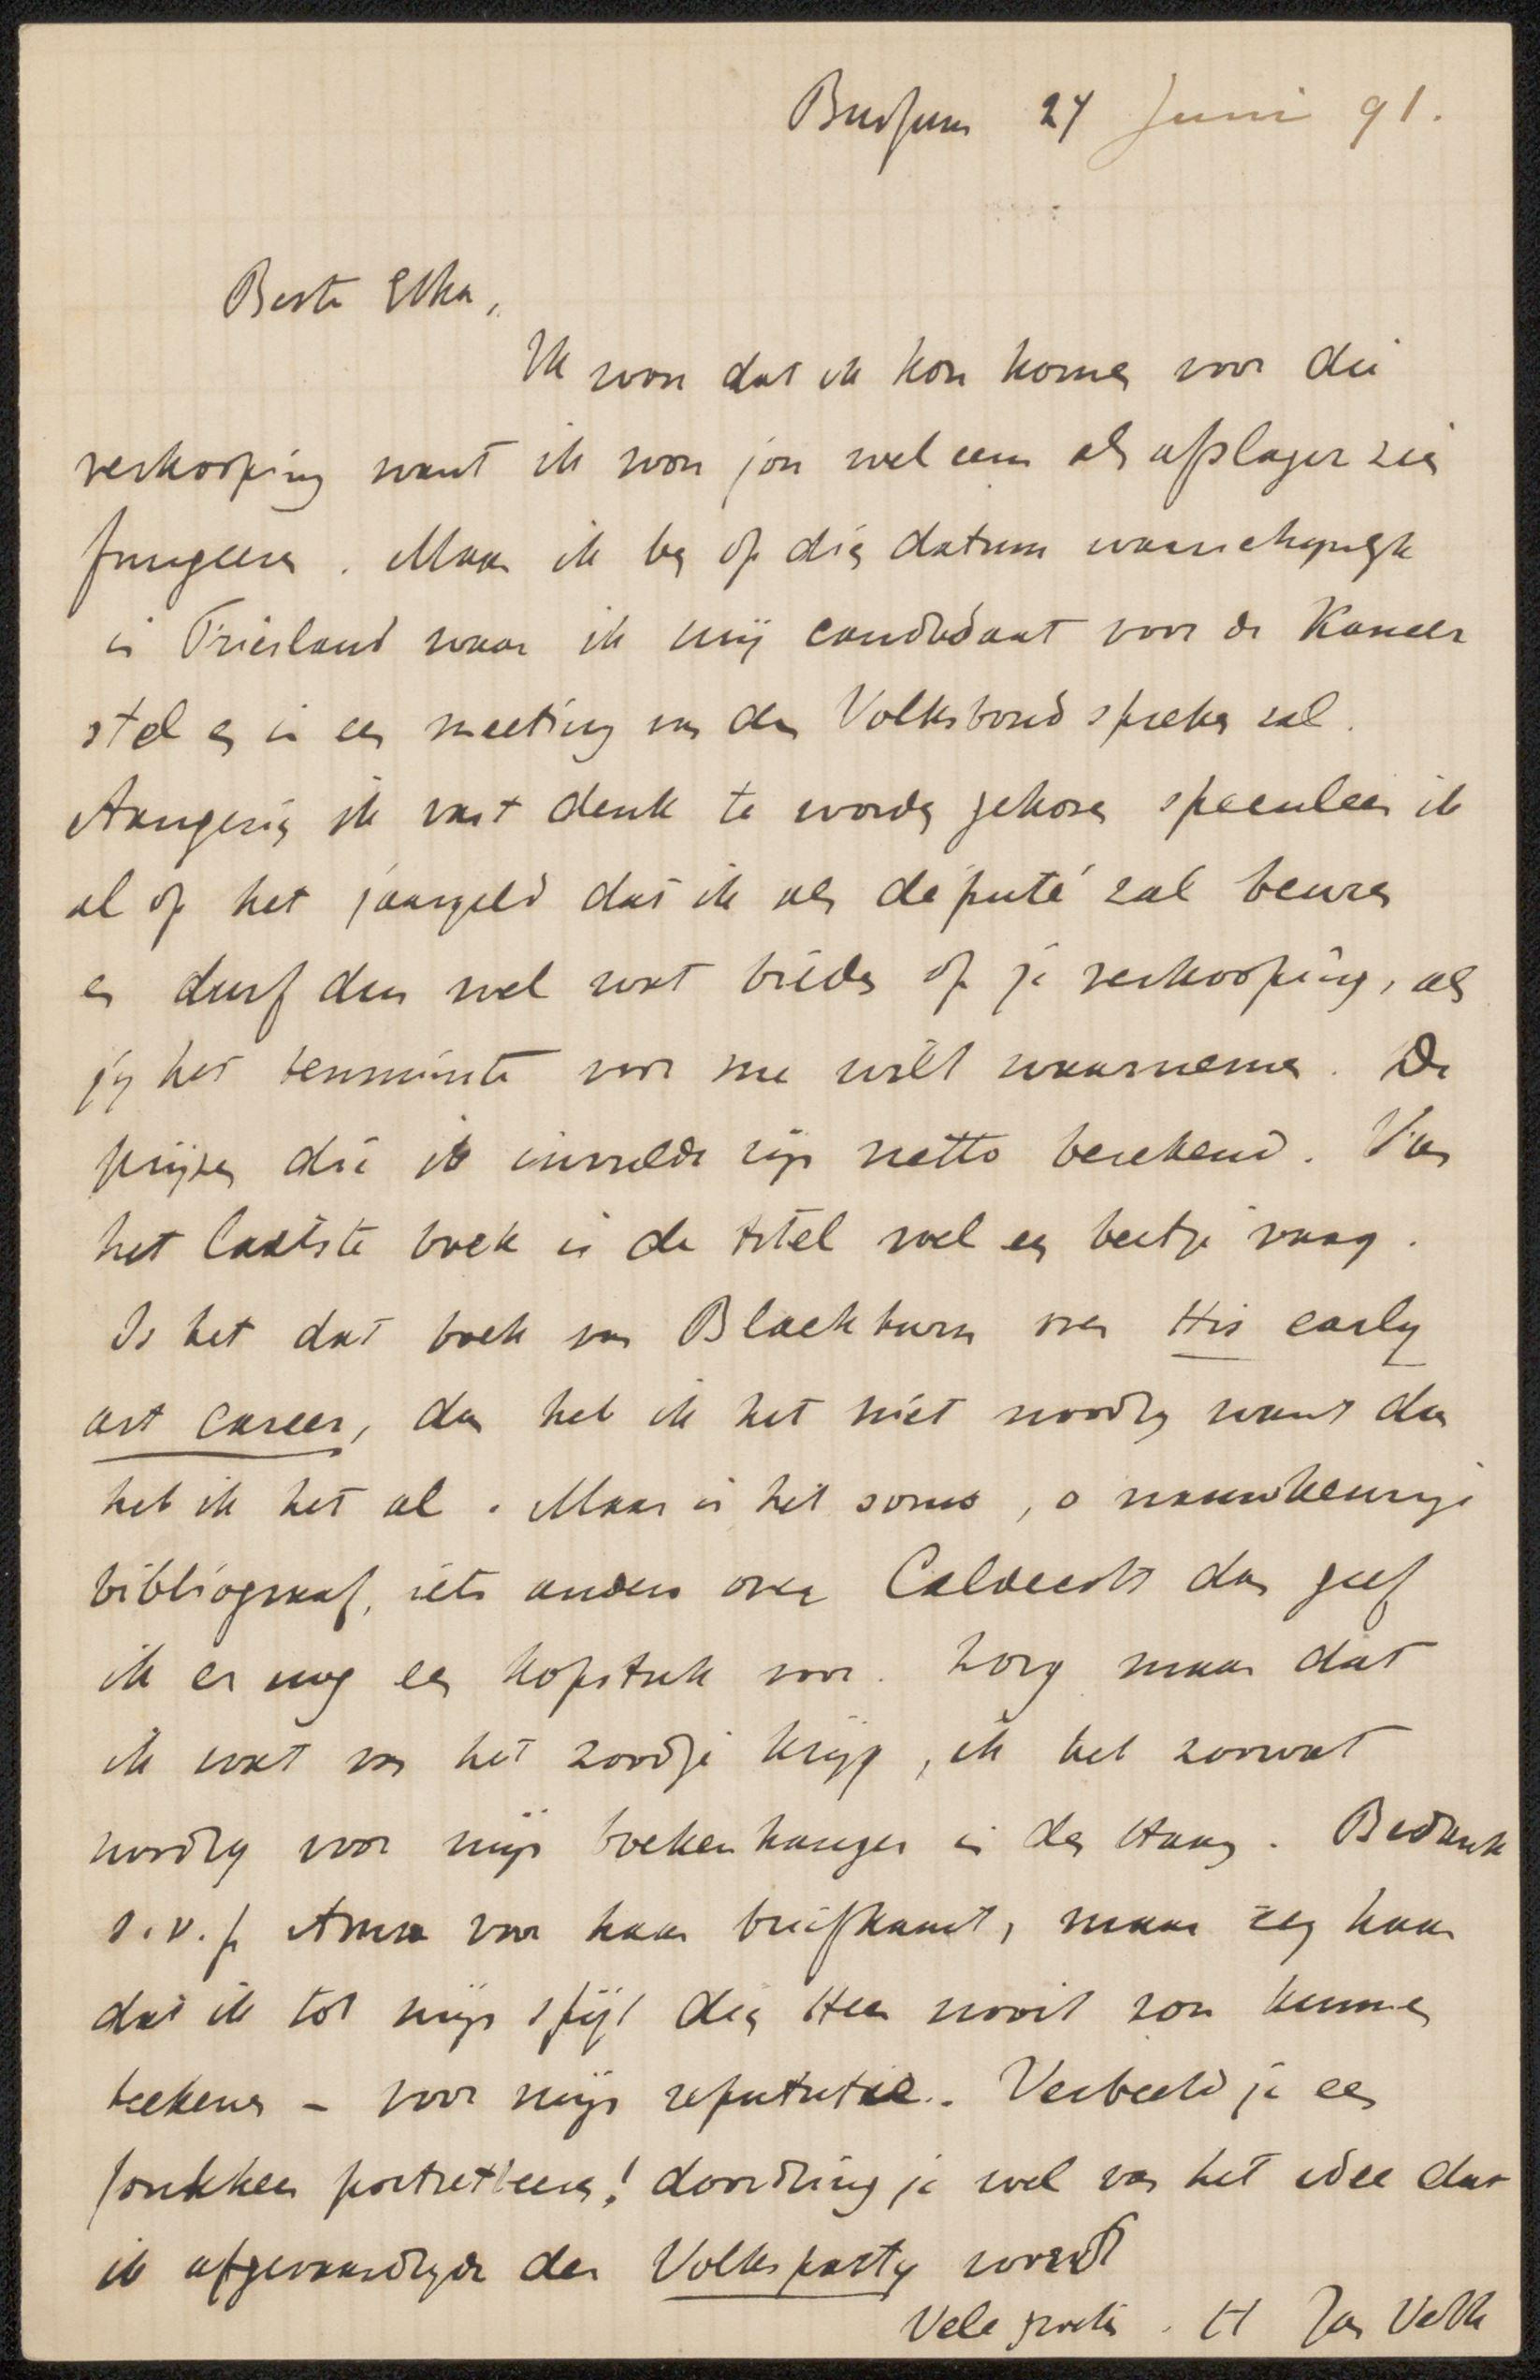 Bussum 24 Juni 91.
Beste Etha,
Ik wou dat ik kon komen voor die
verkooping want ik wou jou wel eens als afslager zien
fungeeren. Maar ik ben op dien datum waarschijnlijk
in Friesland waar ik mij candidaat voor de Kamer
stel en in een meeting van den Volksbond spreken zal.
Aangezien ik vast denk te worden gekozen speculeer ik
al op het jaargeld dat ik als députe zal beuren
en durf dus wel wat bieden op je verkooping, als
jij het tenminste voor me wilt waarnemen. De
prijzen die ik invulde zijn netto berekend. Van
het laatste boek is de titel wel een beetje vaag.
Is het dat boek van Blackburn over His early
art career, dan heb ik het niet noodig want dan
heb ik het al. Maar is het soms, o nauwkeurige
bibliograaf, iets anders over Caldecott dan geef
ik er nog een kopstuk voor. Zorg maar dat
ik wat van het zoodje krijg, ik heb zoowat
noodig voor mijn boekenhanger in den Haag. Bedank
s.v.p. Anna voor haar briefkaart, maar zeg haar
dat ik tot mijn spijt dien Heer nooit zou kunnen
teekenen – voor mijn reputatie. Verbeeld je een
Jonkheer portretteeren! doordring je wel van het idee dat
ik afgevaardigde der Volkspartij wordt
Vele groeten. tt Jan Veth